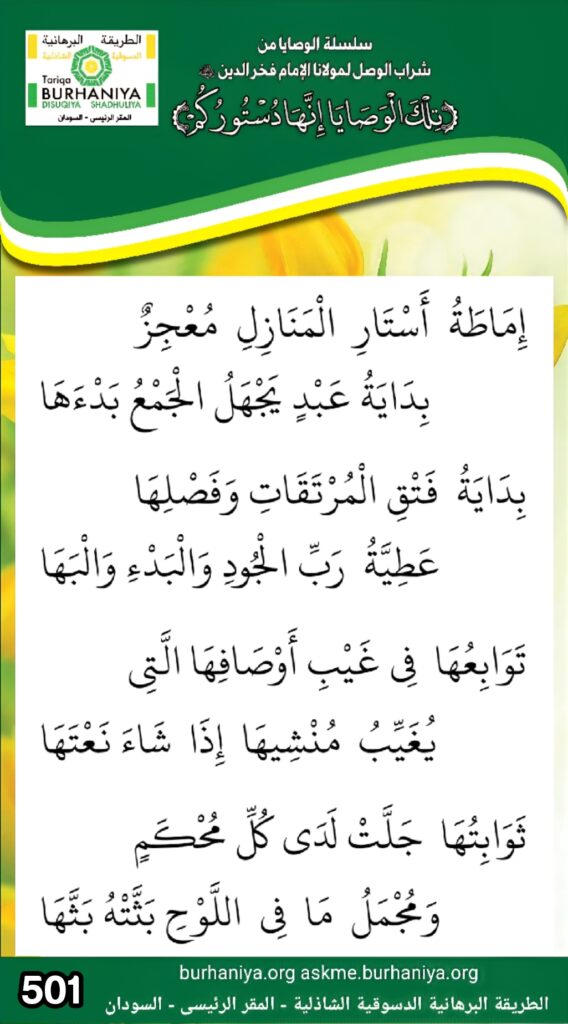 الطريقة البرهانية
الدسوقية الشاذلية
Tariqa
BURHANIYA
DISUQIYA SHADHULIYA
المقر الرئيسى - السودان
سلسلة الوصايا من
شراب الوصل لمولانا الإمام فخر الدين
تِلْكَ الْوَصَايَا إِنَّهَا دُسْتُورُكُمْ
إِمَاطَةُ أَسْتَارِ الْمَنَازِلِ مُعْجِزٌ
بِدَايَةُ عَبْدٍ يَجْهَلُ الْجَمْعُ بَدْءَهَا
بِدَايَةُ فَتْقِ الْمُرْتَقَاتِ وَفَصْلِهَا
عَطِيَّةُ رَبِّ الْجُودِ وَالْبَدْءِ وَالْبَهَا
تَوَابِعُهَا فِى غَيْبِ أَوْصَافِهَا الَّتِى
يُغَيِّبُ مُنْشِيهَا إِذَا شَاءَ نَعْتَهَا
ثَوَابِتُهَا جَلَّتْ لَدَى كُلِّ مُحْكَمٍ
وَمُجْمَلُ مَا فِى اللَّوْحِ بَثَّتْهُ بَثَّهَا
burhaniya.org askme.burhaniya.org
501
الطريقة البرهانية الدسوقية الشاذلية - المقر الرئيسى - السودان